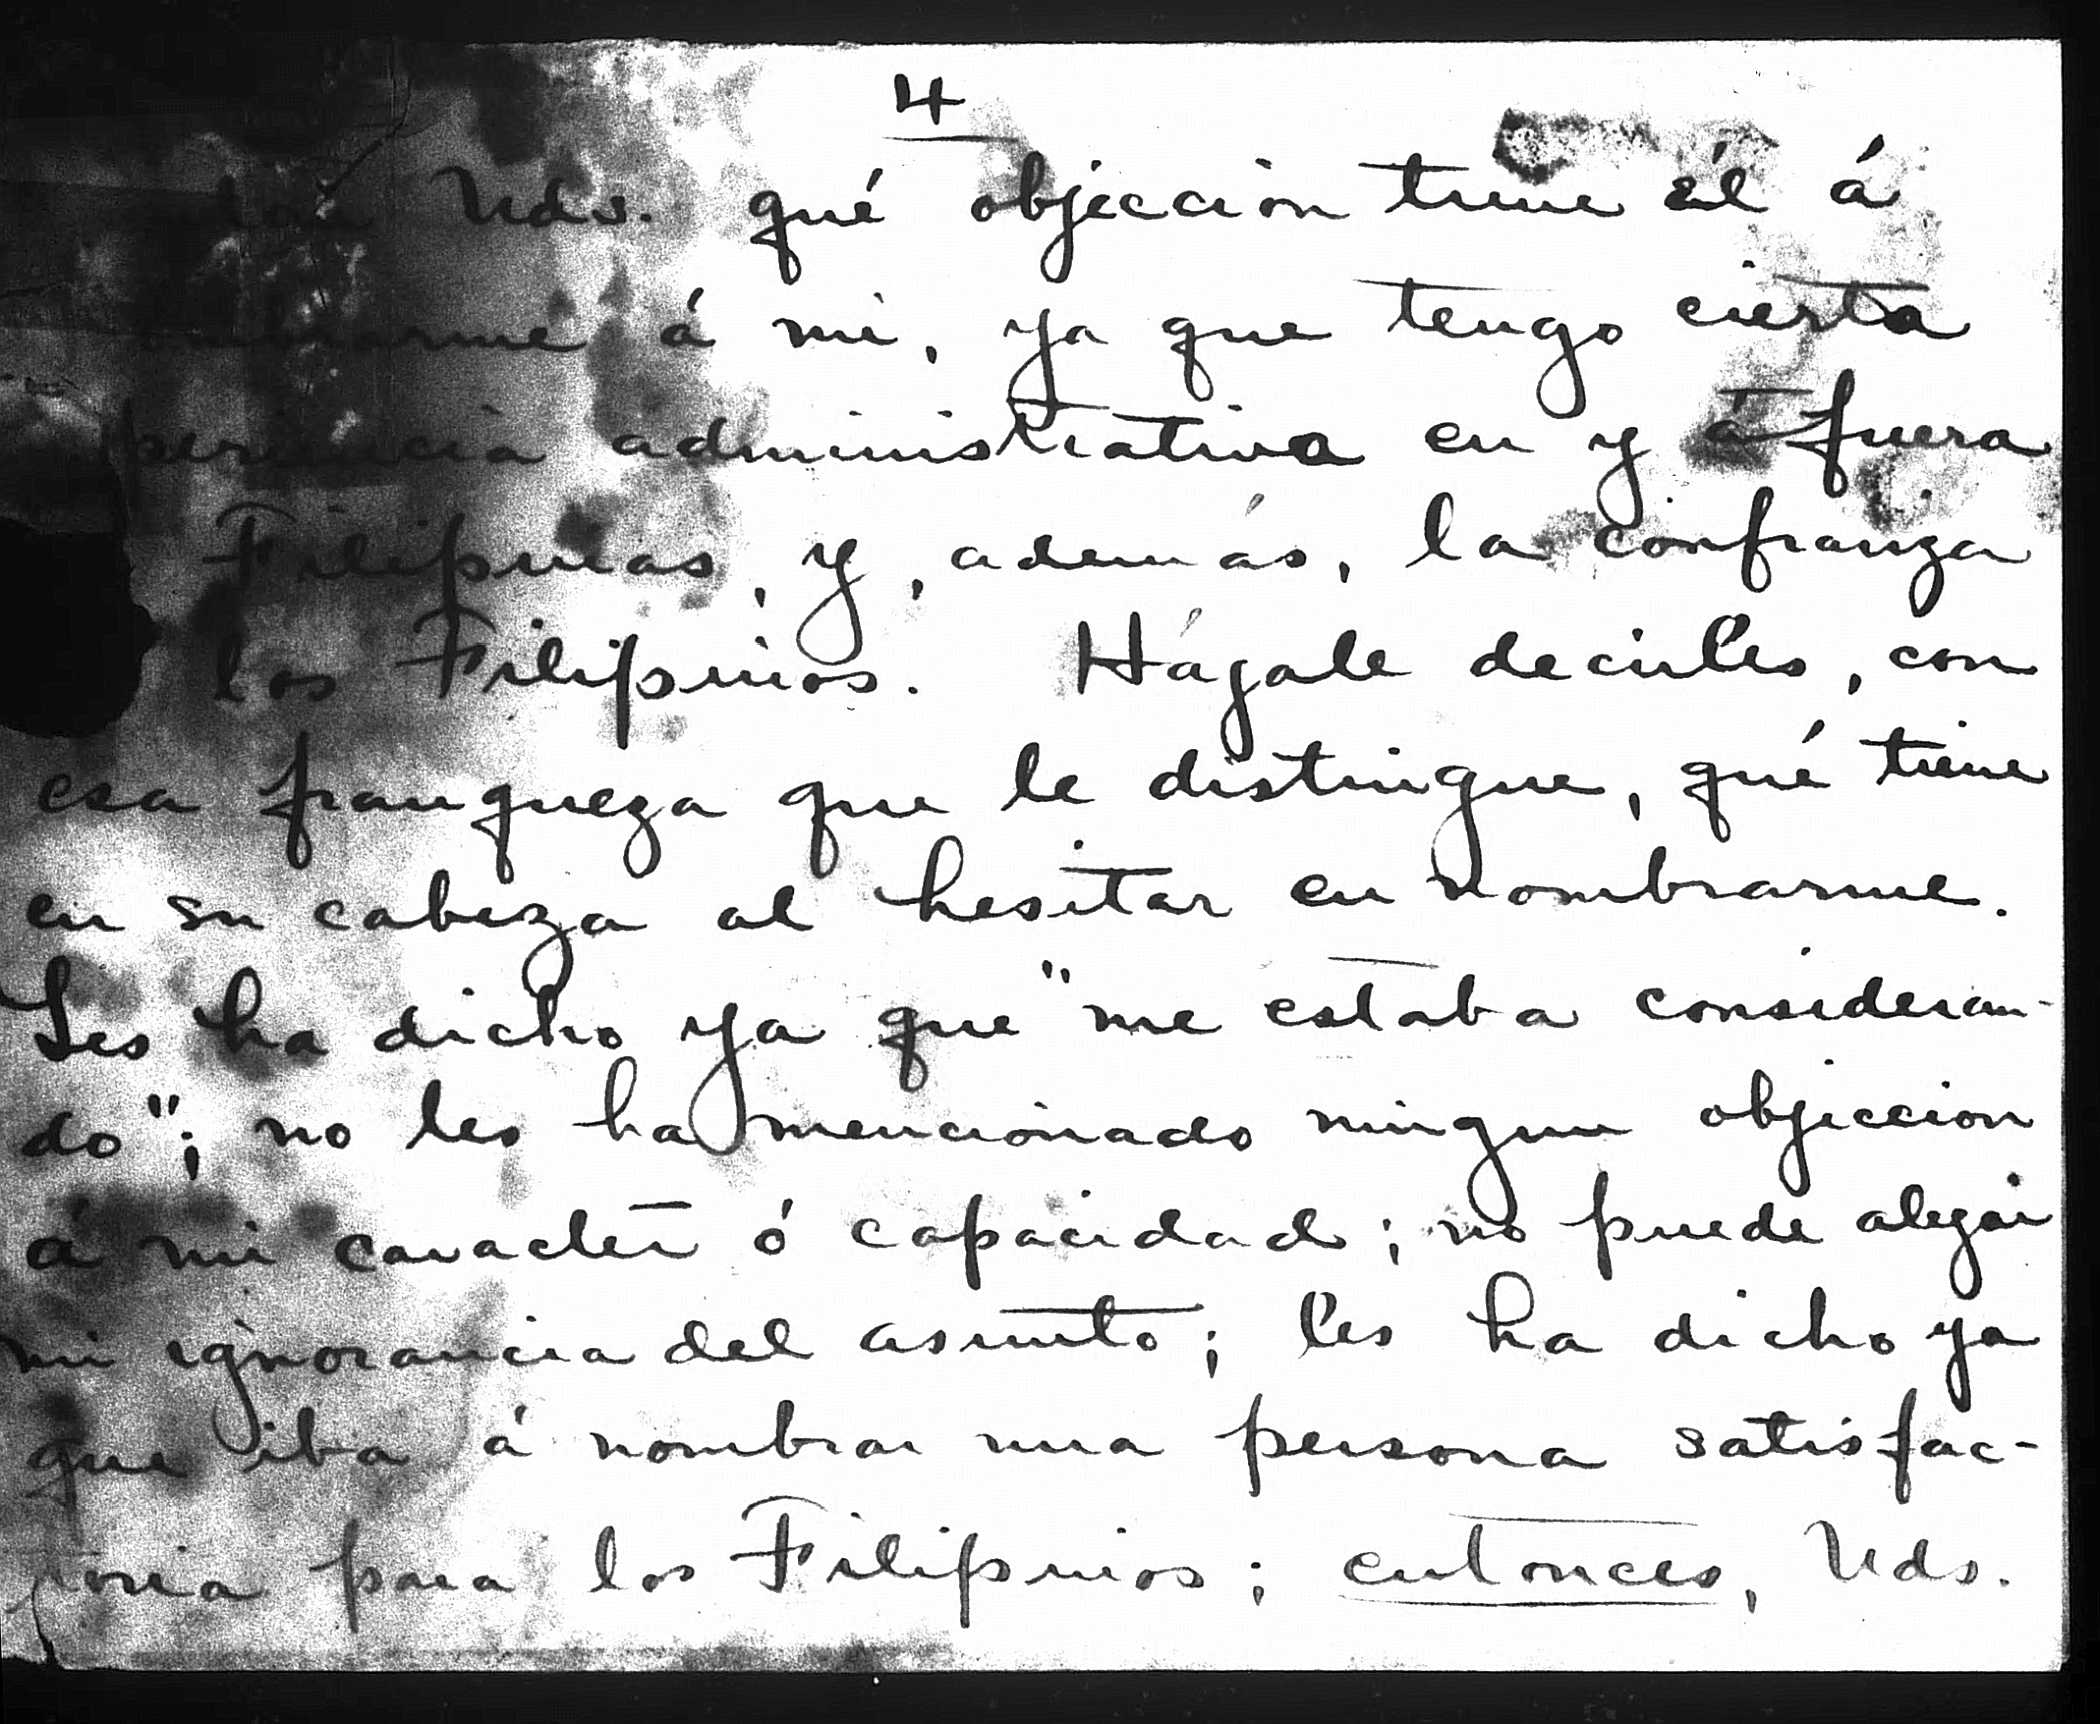 4
Uds. qué objeccion tiene él á
á mi, ya que tengo cierta
administrativa en y á fuera
Filipinas, y, además, la confianza
los Filipinos. Hágale decirles, con
esa franqueza que le distingue, qué tiene
en su cabeza al hesitar en nombrarme.
Les ha dicho ya que "me estaba consideran-
do"; no les ha mencionado ningun objeccion
á mi caracter ó capacidad; no puede alegar
mi ignorancia del asunto; les ha dicho ya
que iba á nombrar una persona satisfac-
toria para los Filipinos; entonces, Uds.